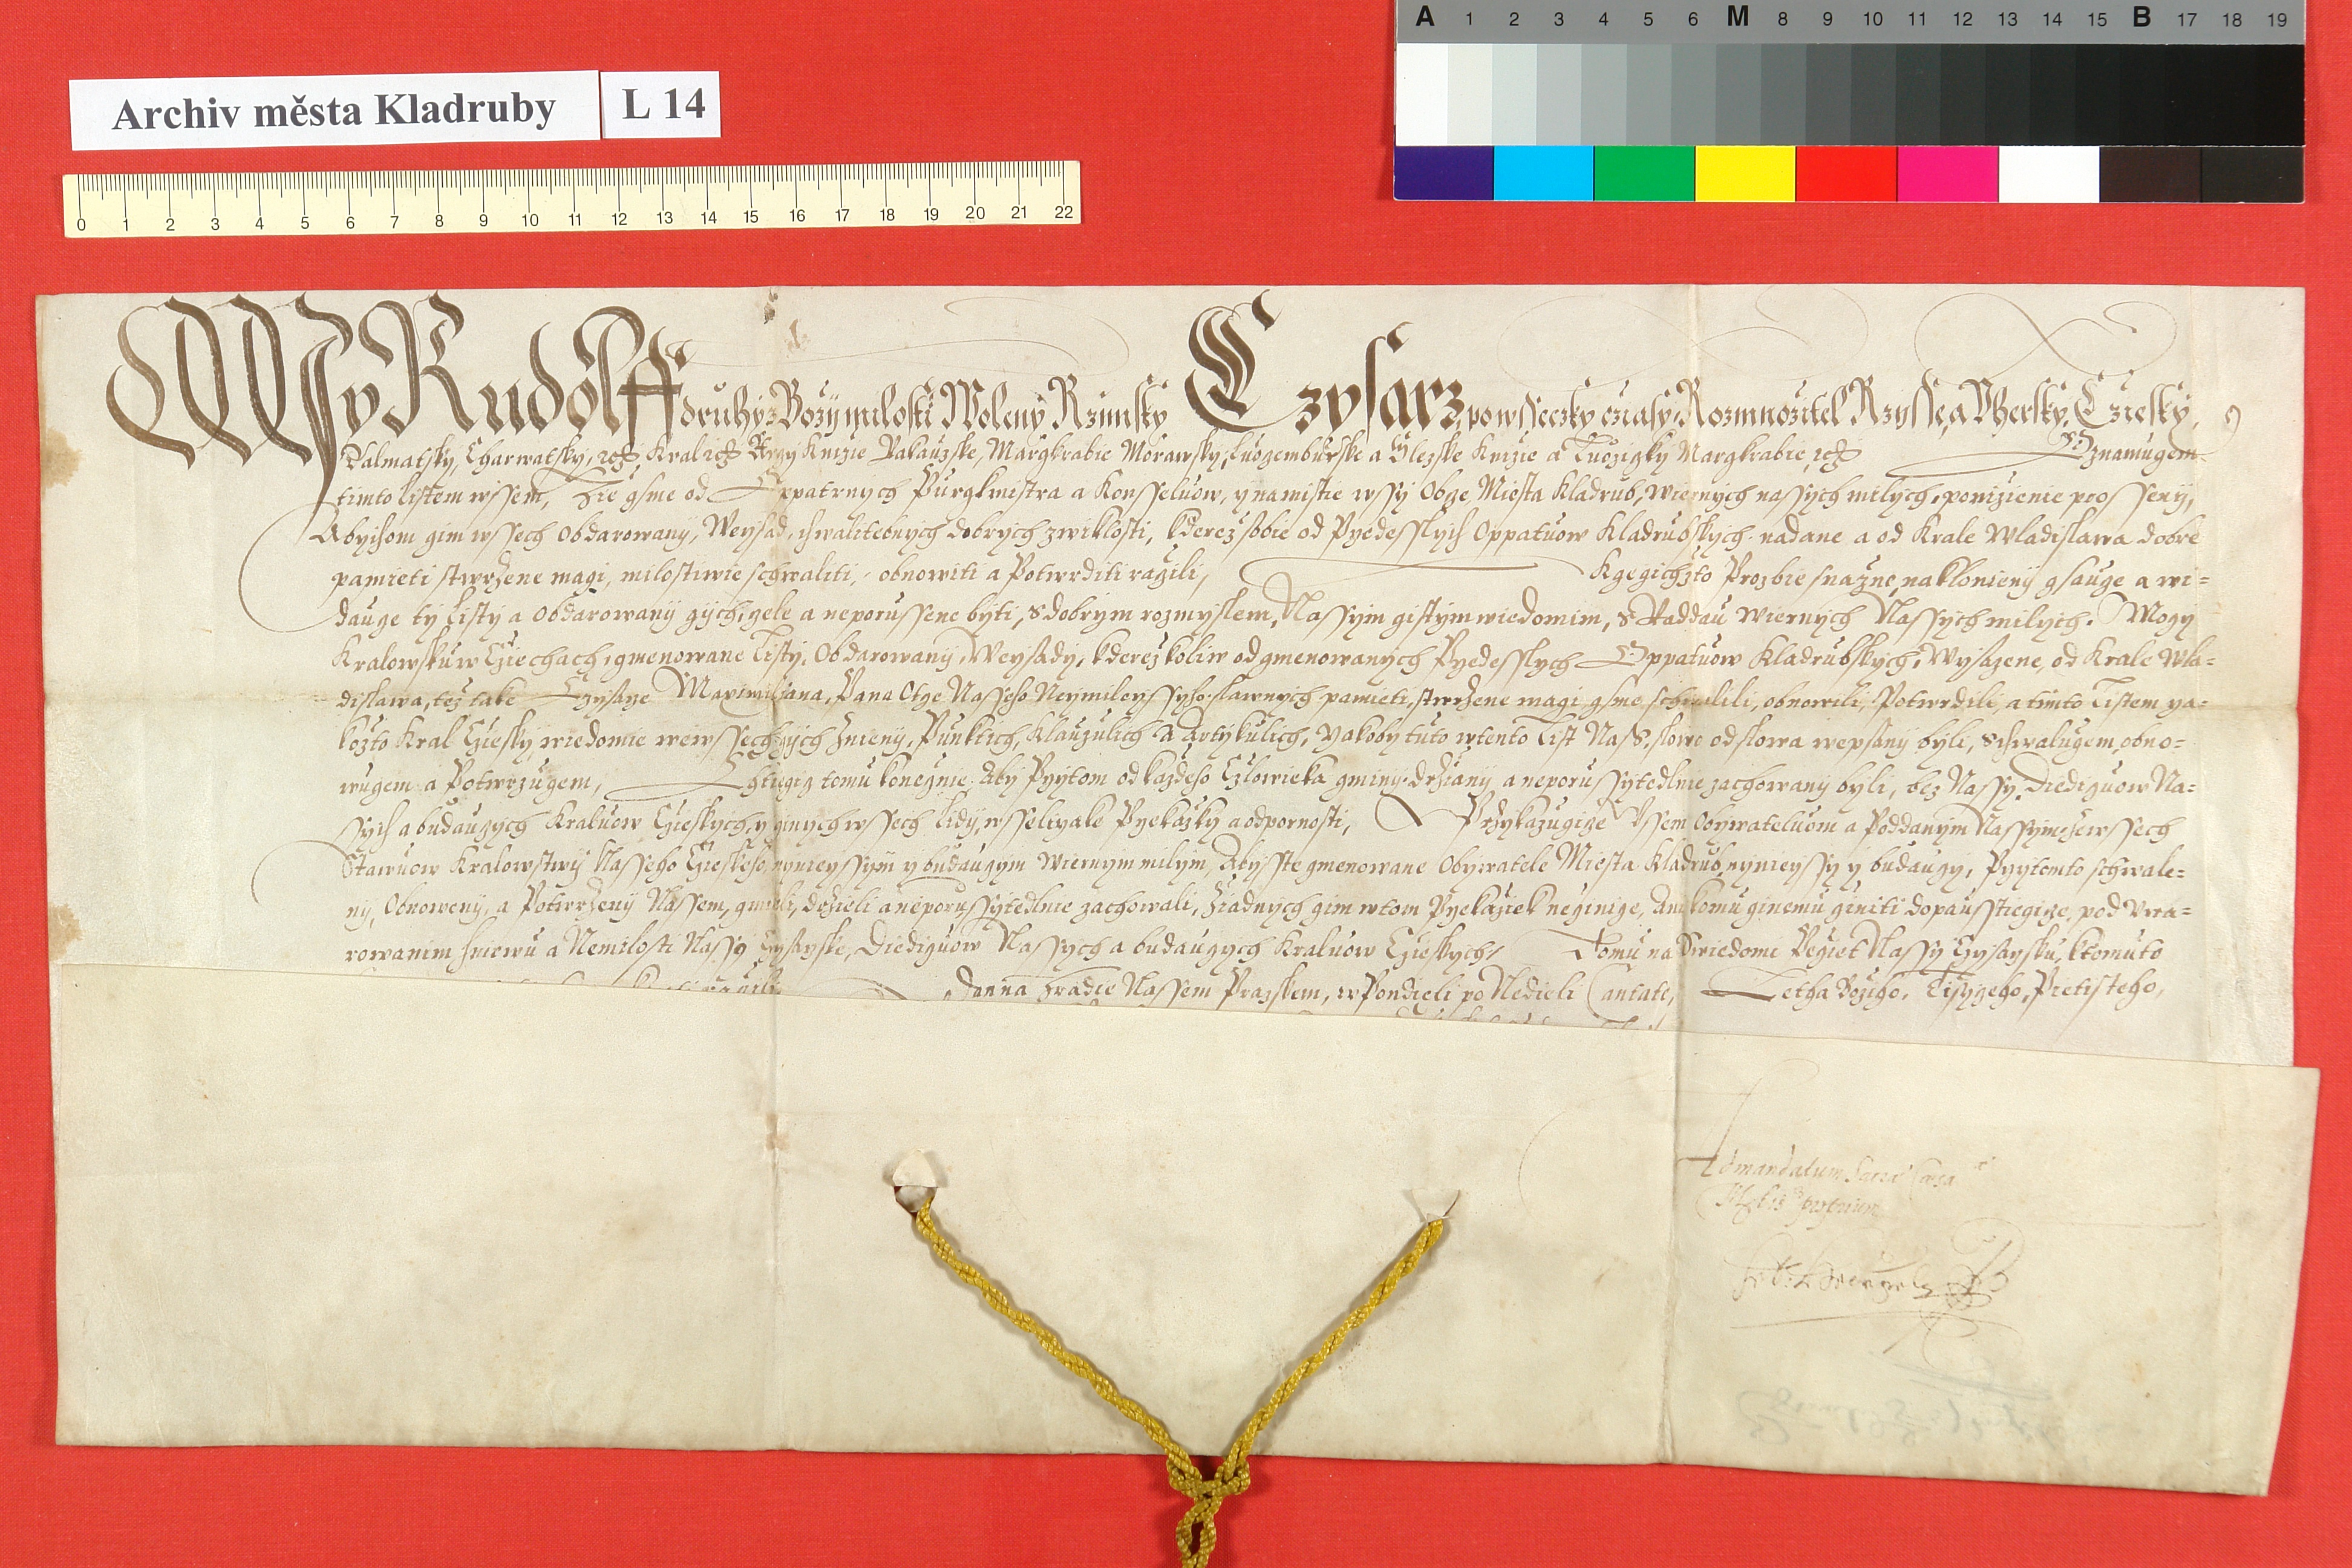 Archiv města Kladruby
L 14
A 1 2 3 4 5 6 M 8 9 10 11 12 13 14 15 B 17 18 19
0 1 2 3 4 5 6 7 8 9 10 11 12 13 14 15 16 17 18 19 20 21 22
My Rudolff druhý z Božy milosti Woleny Rzimsky Czysarz, po wssieczky cziasy Rozmnožitel Rzysse, a Uhersky, Cziesky,
Dalmatsky, Charwatsky, Kral Knizie Rakauzske, Margkrabie Morawsky, Luczemburske a Slezske Knizie a Luozigky Margkrabie Oznamugem
timto listem wssem, Zie gsme od Oppatrnych Purgkmistra a Konsseluow, y na mistie wssy Obge Miesta Kladrub, wiernych nassych milych, ponizienie prosseny,
Abychom gim wssech Obdarowany, Weysad, chwalitebnych dobrych zwiklosti, kderez sobie od Przedesslych Oppatuow Kladrubskych nadane a od Krale Wladislawa dobre
pamieti stwrzene magi, milostiwie schwaliti, obnowiti a Potwrditi razili, K gegichzto Prozbie snazne naklonieny gsauge a wi=
dauge ty Listy a Obdarowany gych, zele a neporussene byti, s dobrym rozmyslem, Nassym gistym wiedomim, s Raddau wiernych Nassych milych. Mogy
Kralowsku w Cziechach, gmenowane Listy, Obdarowany, Weysady, kderezkoliw od gmenowanych Przedesslych Oppatuow Kladrubskych, Wysazene, od Krale Wla=
dislawa, tez take Czysarze Maximiliana, Pana Otze Nasseho Neymileyssyho slawnych pamieti, stwrzene magi gsme schwalili, obnowili, Potwrdili, a timto Listem ya=
kozto Kral Cziesky, wiedomie we wssech gych zmieny, Punktich, Klauzulich a Artykulich, yakoby tuto w tento List Nass, slowo od slowa wepsany byli, Schwalugem, obno=
wugem a Potwrzugem, Chtiegiz tomu konecznie, Aby Przytom od kazdeho Czlowieka gminy, drziany a neporussytedlnie zachowany byli, bez Nassy, Diediczuow Na=
ssych a budauzych Kraluow Czieskych, y ginych wssech lidy, wsselyyake Przekazky a odpornosti, Przykazugize Wssem Obywateluom a Poddanym Nassym, ze wssech
Stawuow Kralowstwy Nasseho Czieskeho, nynieyssym y budauzym wiernym milym, Abyste gmenowane Obywatele Miesta Kladrub, nynieyssy y budauzy, Przy tomto schwale=
ny, Obnoweny, a Potwrzeny Nassem, gmieli, drzieli a neporussytedlnie zachowali, Ziadnych gim w tom Przekaziek neginize, Ani komu ginemu giniti dopausstiegize, pod uwa=
rowanim hniewu a Nemilosti Nassy Czysarzske, Diediczuow Nassych a budauzych Kraluow Czieskych, Tomu na Swiedomi Peczet Nassy Czysarzsku, k tomuto
Dan na Hradie Nassem Prazskem, w Pondieli po Nedieli Cantate, Letha Bozieho, Tisyzeho, Pietisteho,
Ad mandatum Sacrae Caesae
Mtis proprium